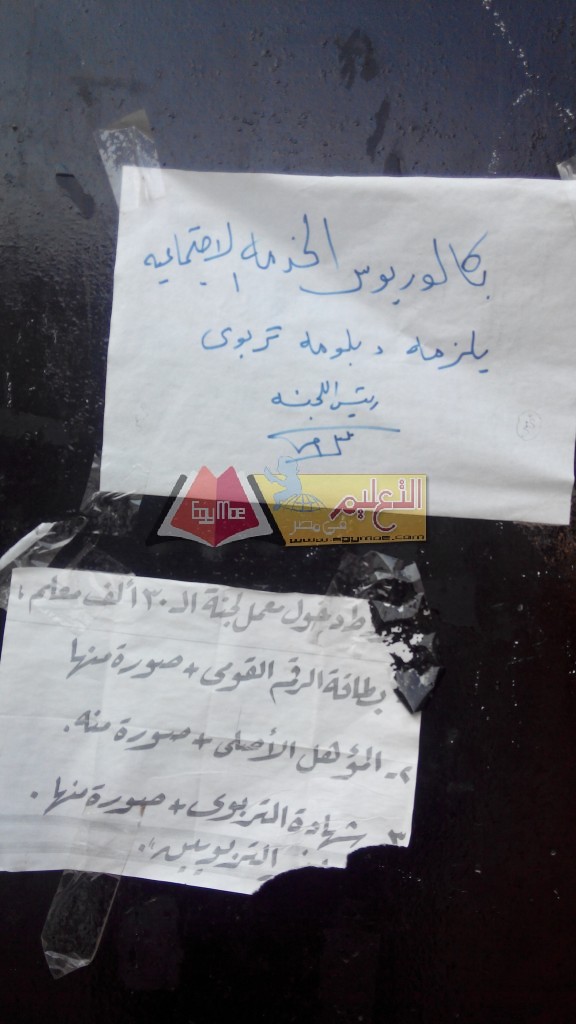 بكالوريوس الخدمه الاجتماعيه
يلزمه دبلومه تربوى
رئيس اللجنه
EgyMoe
التعليم
فى مصر
www.egymoe.com
دخول معمل لجنة الـ ٣٠ ألف معلم :
بطاقة الرقم القومى + صورة منها
٢- المؤهل الأصلى + صورة منه .
٣ شهادة التربوى + صورة منها .
التربويين .